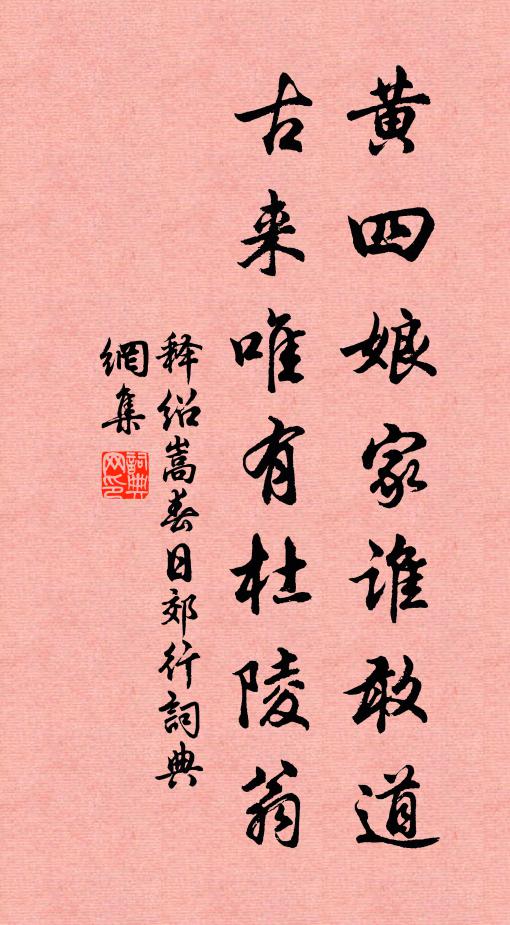 黄四娘家谁敢道
古来唯有杜陵翁
释绍嵩春日郊行詞典
網集
詞典
网印